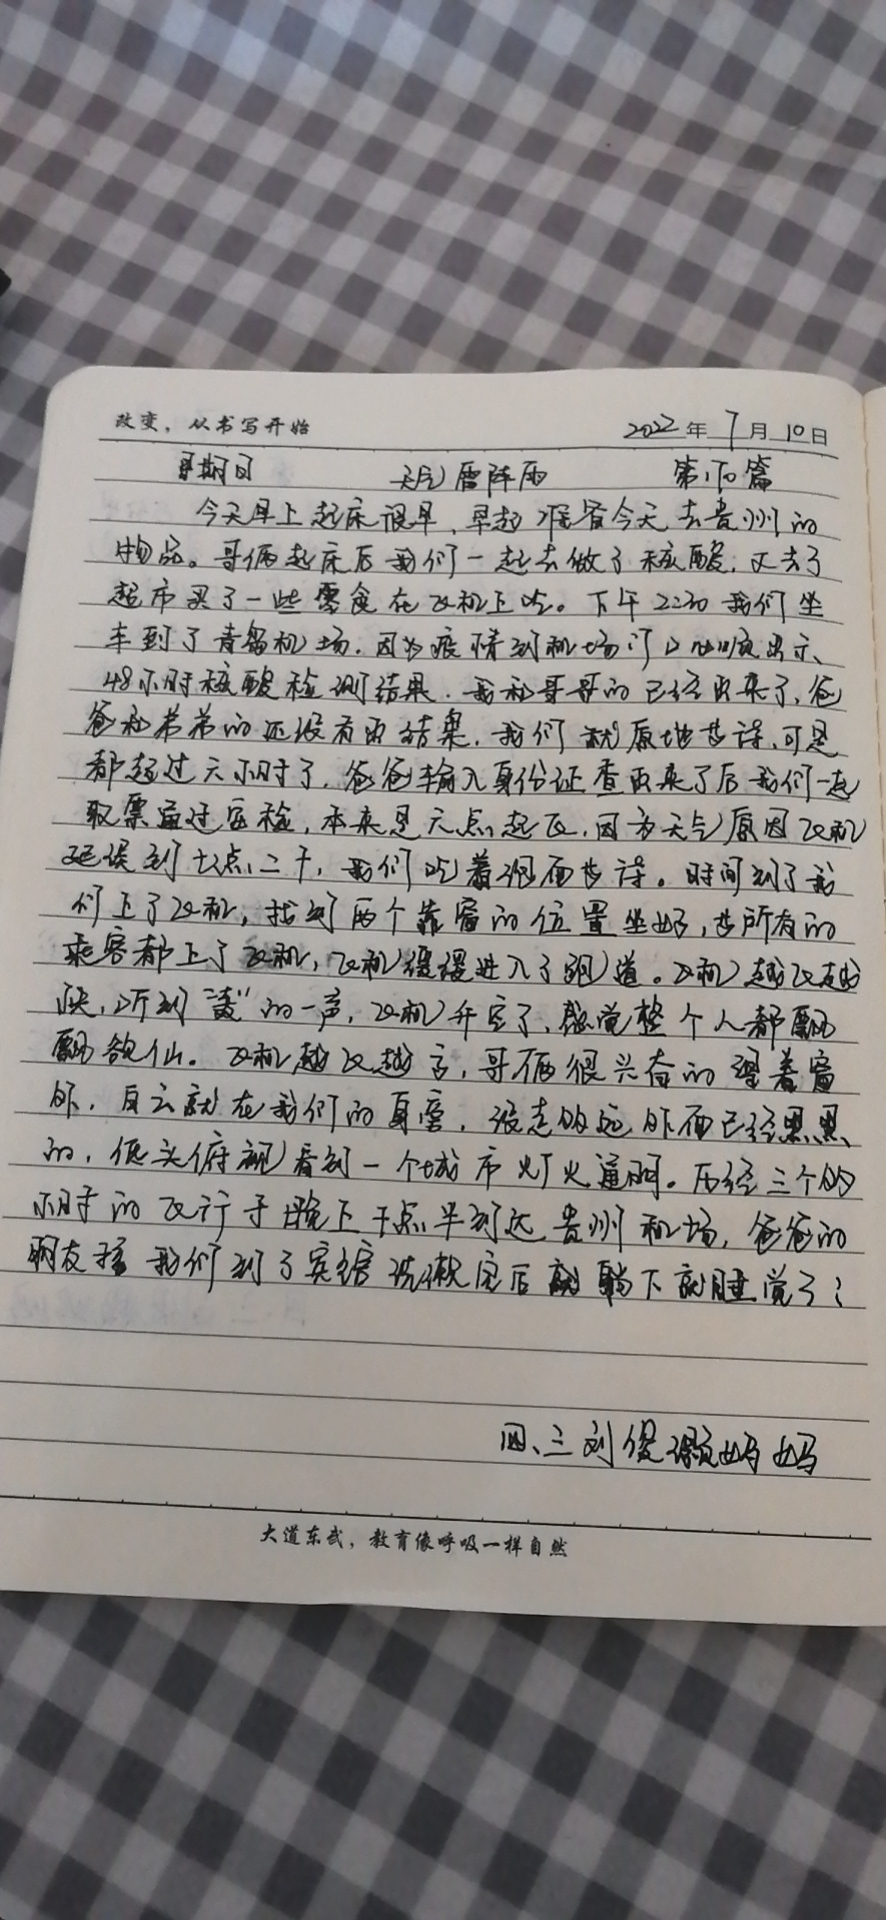 改变，从书写开始
2022年7月10日
星期日 天气雷阵雨 第 篇
今天早上起床很早，早起准备今天去贵州的
物品。哥俩起床后我们一起去做了核酸，又去了
超市买了一些零食在飞机上吃。下午2:20我们坐
车到了青岛机场，因为疫情到机场门口必须出示
48小时核酸检测结果，我和哥哥的已经出来了，爸
爸和弟弟的还没有出结果，我们就原地等待，可是
都超过六小时了，爸爸输入身份证查出来了后我们一起
取票通过安检，本来是六点起飞，因为天气原因飞机
延误到七点二十，我们吃着泡面等待。时间到了我
们上了飞机，找到两个靠窗的位置坐好，等所有的
乘客都上了飞机，飞机缓缓进入了跑道。飞机越飞越
快，听到“ ”的一声，飞机升空了，感觉整个人都飘
飘欲仙。飞机越飞越高，哥俩很兴奋的望着窗
外，白云就在我们的身旁，没走多远外面已经黑黑
的，低头俯视看到一个城市灯火通明。历经三个多
小时的飞行于晚上十点半到达贵州机场，爸爸的
朋友接我们到了宾馆洗漱完后 躺下就睡觉了；
四、三刘俊颢妈妈
大道东武，教育像呼吸一样自然